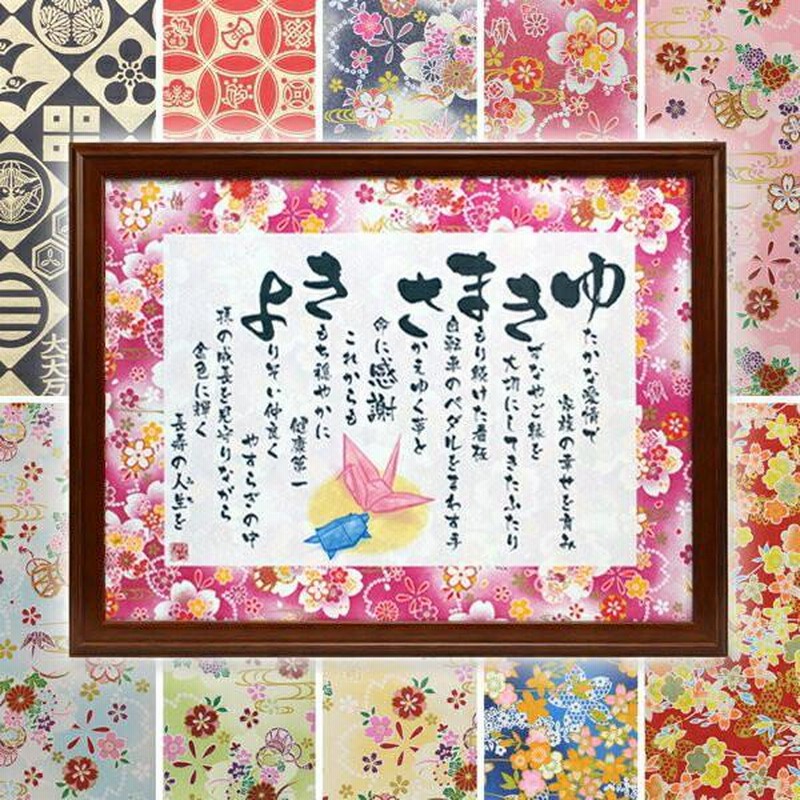 ゆたかな愛情で
家族の幸せを育み
きずなやご縁を
大切にしてきたふたり
まもり続けた看板
自転車のペダルをまわす手
さかえゆく と
命に感謝
これからも
きもち穏やかに
健康第一
よりそい仲良く
やすらぎの中
孫の成長を見守りながら
金色に輝く
長寿の人生を
みち
大大万